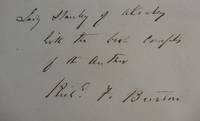 Lady Stanley of Alderley
with the best compts
of the Author
Richd F. Burton